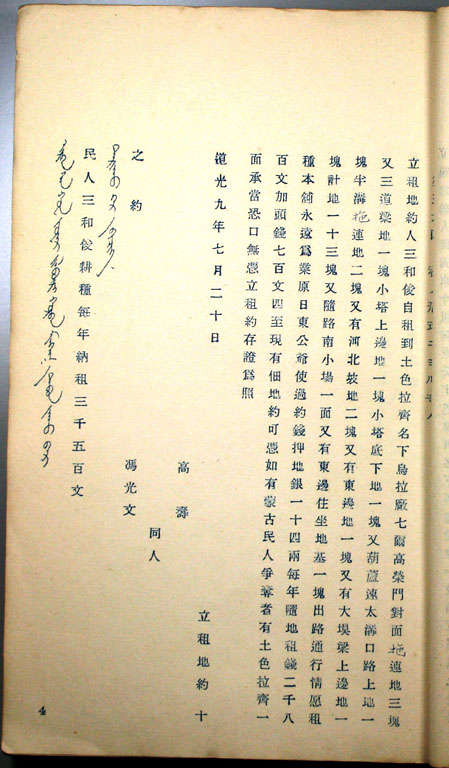 立租地約人三和俊自租到土色拉齊名下烏拉廠七爾高榮門對面拖連地三塊
又三道樑地一塊小塔上邊地一塊小塔底下地一塊又葫蘆速太溝口路上地一
塊半溝拖連地二塊又有河北坡地二塊又有東邊地一塊又有大埧梁上邊地一
塊計地一十三塊又隨路南小場一面又有東邊住坐地基一塊出路通行情愿租
種本舖永遠爲業原日東公爺使過約錢押地銀一十四兩每年隨地租錢二千八
百文加頭錢七百文四至現有佃地約可憑如有蒙古民人爭奪者有土色拉齊一
面承當恐口無憑立租約存證爲照
道光九年七月二十日
立租地約十
同人
高濤
馮光文
之約
民人三和俊耕種每年納租三千五百文
4